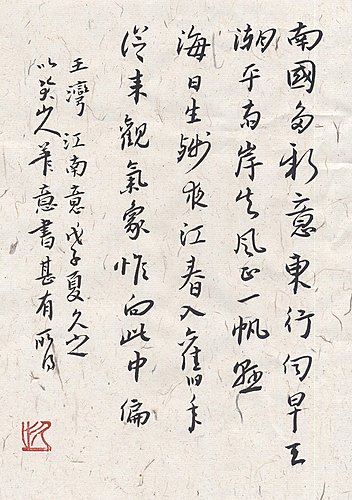 南國多新意東行伺早天
潮平兩岸失風正一帆懸
海日生殘夜江春入舊年
從來觀氣象惟向此中偏
王灣 江南意 戊子夏久之
以山人筆意書甚有所得